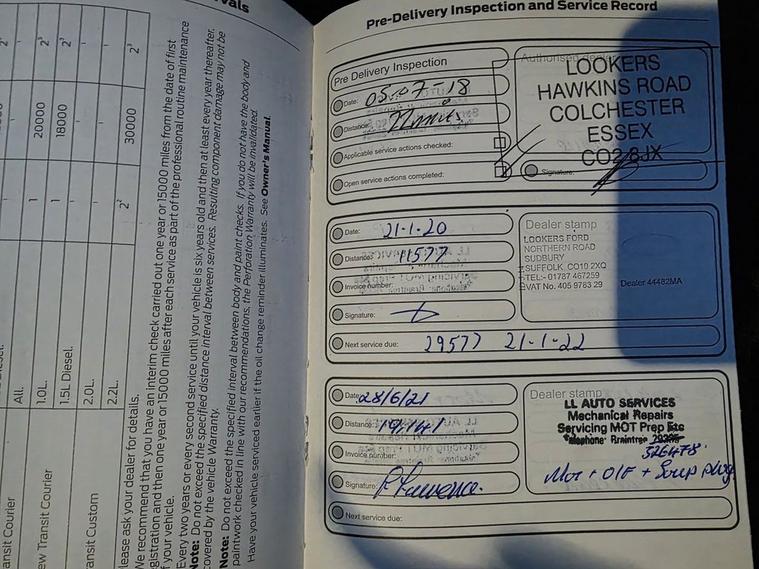 Pre-Delivery Inspection and Service Record
Pre Delivery Inspection
Date: 05-07-18
Distance:
Applicable service actions checked:
Open service actions completed:
LOOKERS
HAWKINS ROAD
COLCHESTER
ESSEX
CO2 8JX
Signature:
Date: 21-1-20
Distance: 11577
Invoice number:
Signature:
Next service due: 29577 21-1-22
Dealer stamp
LOOKERS FORD
NORTHERN ROAD
SUDBURY
SUFFOLK, CO10 2XQ
TEL:- 01787 467259
VAT No. 405 9783 29
Dealer 44482MA
Date: 28/6/21
Distance: 19,141
Invoice number:
Signature: P. Lawrence.
Next service due:
Dealer stamp
LL AUTO SERVICES
Mechanical Repairs
Servicing MOT Prep Etc
Telephone: Braintree
326478
Mot + OIF +
vals
2³ 2³ 2³
20000 18000 30000
1 1 2²
All.
1.0L.
1.5L Diesel.
2.0L.
2.2L.
ansit Courier
ew Transit Courier
ansit Custom
lease ask your dealer for details.
We recommend that you have an interim check carried out one year or 15000 miles from the date of first
gistration and then one year or 15000 miles after each service as part of the professional routine maintenance
f your vehicle.
Every two years or every second service until your vehicle is six years old and then at least every year thereafter.
Note: Do not exceed the specified distance interval between services. Resulting component damage may not be
overed by the vehicle Warranty.
Note: Do not exceed the specified interval between body and paint checks. If you do not have the body and
paintwork checked in line with our recommendations, the Perforation Warranty will be invalidated.
Have your vehicle serviced earlier if the oil change reminder illuminates. See Owner's Manual.